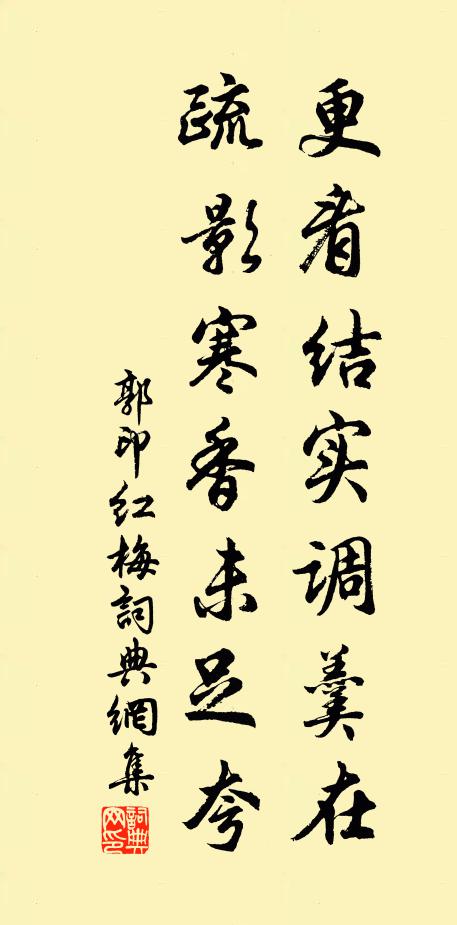 更看结实调羹在
疏影寒香未足夸
郭印红梅詞典網集
詞典网印